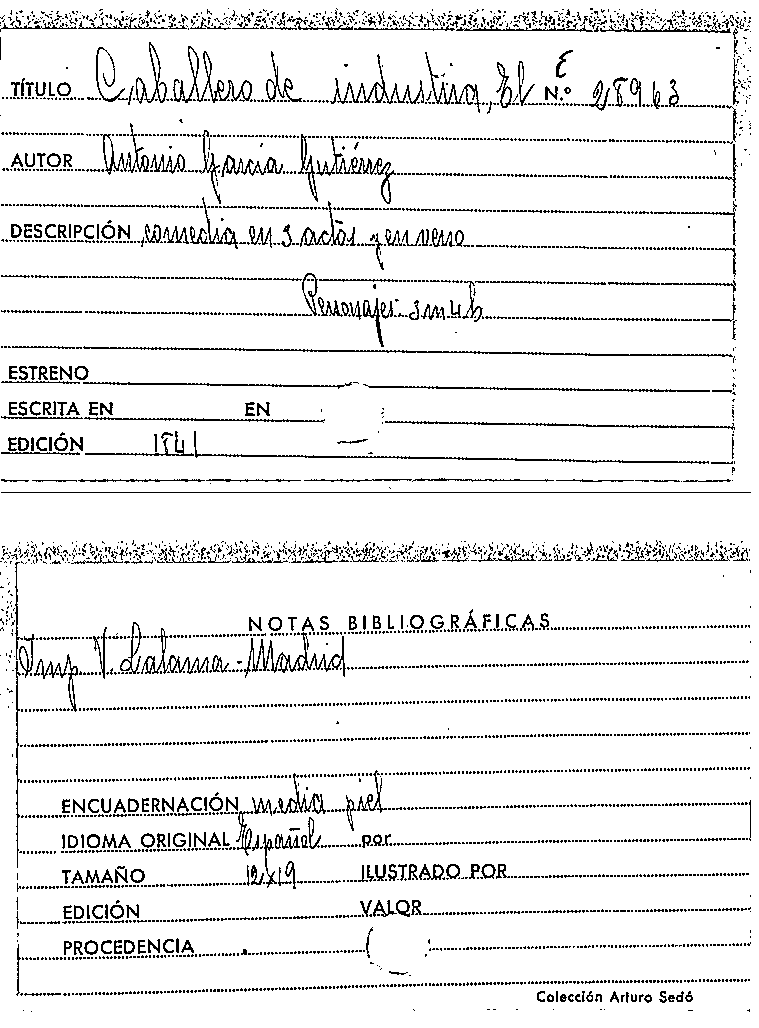 TÍTULO Caballero de industria, El E N.º 28963
AUTOR Antonio García Gutiérrez
DESCRIPCIÓN comedia en 3 actos y en verso
Personajes 3m4h
ESTRENO
ESCRITA EN EN
EDICIÓN 1841
NOTAS BIBLIOGRÁFICAS
Imp V. Lalama - Madrid
ENCUADERNACIÓN media piel
IDIOMA ORIGINAL Español por
TAMAÑO 12x19 ILUSTRADO POR
EDICIÓN VALOR
PROCEDENCIA
Colección Arturo Sedó